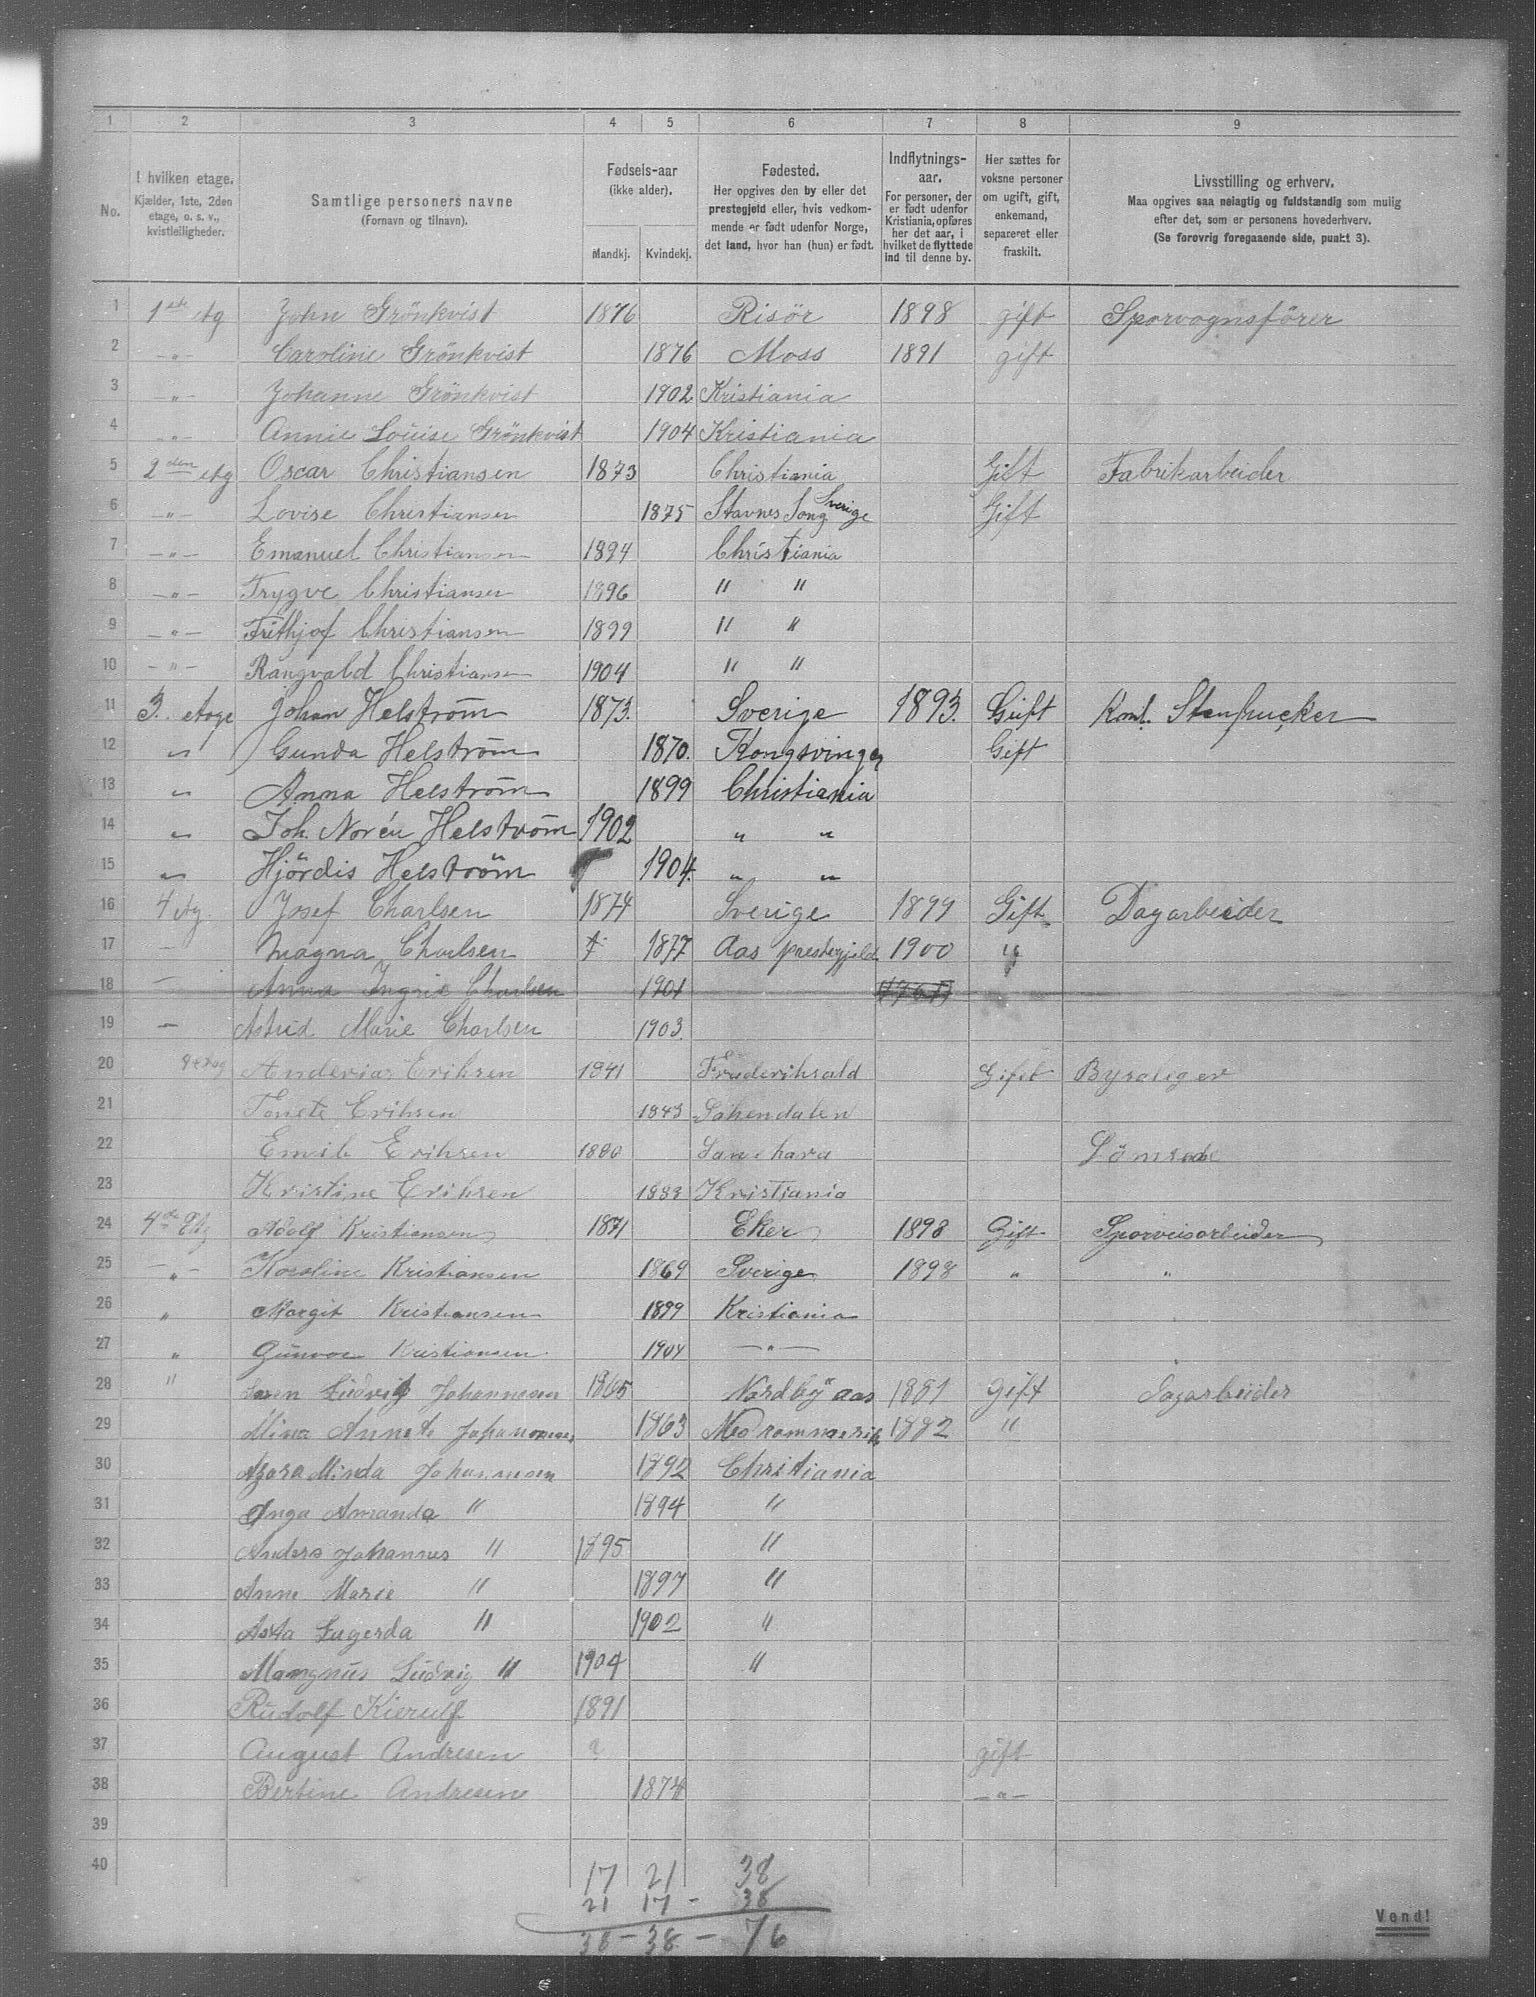 1 2 3 4 5 6 7 8 9
No. I hvilken etage. Kjælder, 1ste, 2den etage, o. s. v., kvistleiligheder. Samtlige personers navne (Fornavn og tilnavn). Fødsels-aar (ikke alder). Mandkj. Kvindekj. Fødested. Her opgives den by eller det prestegjeld eller, hvis vedkommende er født udenfor Norge, det land, hvor han (hun) er født. Indflytnings-aar. For personer, der er født udenfor Kristiania, opføres her det aar, i hvilket de flyttede ind til denne by. Her sættes for voksne personer om ugift, gift, enkemand, separeret eller fraskilt. Livsstilling og erhverv. Maa opgives saa nøiagtig og fuldstændig som mulig efter det, som er personens hovederhverv. (Se forøvrig foregaaende side, punkt 3).
1 1ste etg John Grönkvist 1876 Risör 1898 gift Sporvognsförer
2 -"- Caroline Grönkvist 1876 Moss 1891 gift
3 -"- Johanne Grönkvist 1902 Kristiania
4 -"- Annie Louise Grönkvist 1904 Kristiania
5 2den etg Oscar Christiansen 1873 Christiania Gift Fabrikarbeider
6 -"- Lovise Christiansen 1875 Stavnes Song Sverige Gift
7 -"- Emanuel Christiansen 1894 Christiania
8 -"- Trygve Christiansen 1896 " "
9 -"- Frithjof Christiansen 1899 " "
10 -"- Rangvald Christiansen 1904 " "
11 3. etage Johan Helström 1873. Sverige 1893. Gift Kom. Stenhucker
12 " Gunda Helström 1870. Kongsvinger Gift
13 " Anna Helström 1899 Christiania
14 " Joh. Norén Helström 1902 " "
15 " Hjördis Helström 1904. " "
16 4 etg. Josef Charlsen 1874 Sverige 1899 Gift Dagarbeider
17 - Magna Charlsen 1877 Aas prestegjeld 1900 "
18 - Anna Ingrie Charlsen 1901
19 - Astrid Marie Charlsen 1903.
20 Anderias Erihsen 1841 Frederihsald Gifet Byraliger
21 Tonete Erihsen 1843 Sohendalen
22 Emil Erihsen 1880
23 Kristine Erihsen 1883 Kristiania
24 4de Etg Adolf Kristiansen 1871 Eker 1898 Gift Sporveisarbeider
25 -"- Karoline Kristiansen 1869 Sverige 1898 " "
26 " Margit Kristiansen 1899 Kristiania
27 " Gunvor Kristiansen. 1904 -"-
28 " Ludvig Johannesen 1865 Nordby aas 1881 Gift Dagarbeider
29 Mina Annete Johannesen 1863 Nedrommerik 1882 "
30 Minda Johannesen 1892 Christiania
31 Inga Amanda " 1894 "
32 Anders Johannes " 1895 "
33 Anne Marie " 1897 "
34 Asta Lugerda " 1902 "
35 Mangnus Ludvig " 1904 "
36 Rudolf Kierulf 1891
37 August Andresen ? gift
38 Bertine Andresen 1874 -"-
39
40 17 21 38
21 17 - 38
38 - 38 - 76
Vend!